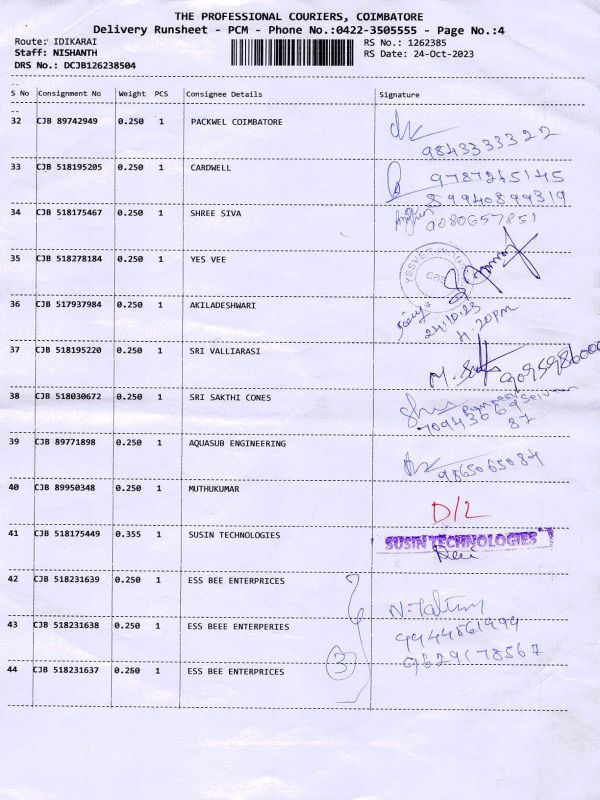 THE PROFESSIONAL COURIERS, COIMBATORE
Delivery Runsheet - PCM - Phone No.:0422-3505555 - Page No.:4
Route: IDIKARAI RS No.: 1262385
Staff: NISHANTH RS Date: 24-Oct-2023
DRS No.: DCJB126238504
S No Consignment No Weight PCS Consignee Details Signature
32 CJB 89742949 0.250 1 PACKWEL COIMBATORE
9843333322
33 CJB 518195205 0.250 1 CARDWELL 9787265145
89940899319
34 CJB 518175467 0.250 1 SHREE SIVA 9080657851
35 CJB 518278184 0.250 1 YES VEE
36 CJB 517937984 0.250 1 AKILADESHWARI
24.10.23
4.20pm
37 CJB 518195220 0.250 1 SRI VALLIARASI
38 CJB 518030672 0.250 1 SRI SAKTHI CONES
39 CJB 89771898 0.250 1 AQUASUB ENGINEERING
9865065087
40 CJB 89950348 0.250 1 MUTHUKUMAR
D/L
41 CJB 518175449 0.355 1 SUSIN TECHNOLOGIES SUSIN TECHNOLOGIES
42 CJB 518231639 0.250 1 ESS BEE ENTERPRICES
43 CJB 518231638 0.250 1 ESS BEEE ENTERPERIES
3
44 CJB 518231637 0.250 1 ESS BEE ENTERPRICES